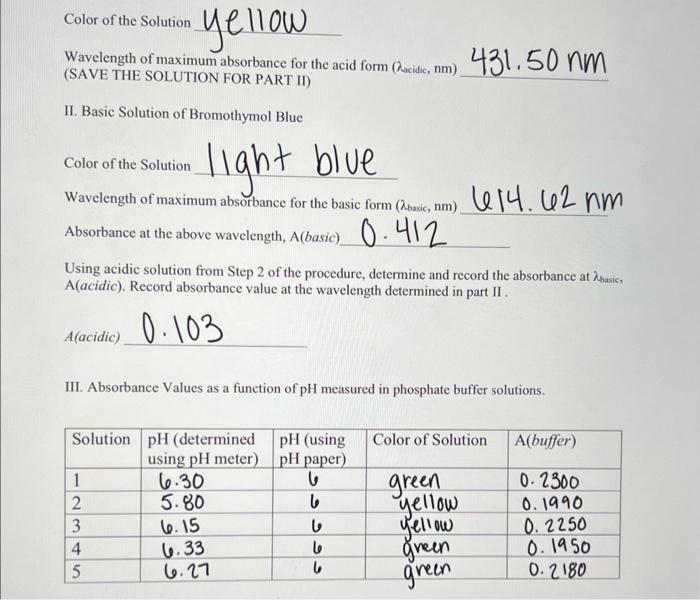 Color of the Solution yellow
Wavelength of maximum absorbance for the acid form (λacidic, nm) 431.50 nm
(SAVE THE SOLUTION FOR PART II)
II. Basic Solution of Bromothymol Blue
Color of the Solution light blue
Wavelength of maximum absorbance for the basic form (λbasic, nm) 614.62 nm
Absorbance at the above wavelength, A(basic) 0.412
Using acidic solution from Step 2 of the procedure, determine and record the absorbance at λbasic,
A(acidic). Record absorbance value at the wavelength determined in part II .
A(acidic) 0.103
III. Absorbance Values as a function of pH measured in phosphate buffer solutions.
Solution pH (determined using pH meter) pH (using pH paper) Color of Solution A(buffer)
1 6.30 6 green 0.2300
2 5.80 6 yellow 0.1990
3 6.15 6 yellow 0.2250
4 6.33 6 green 0.1950
5 6.27 6 green 0.2180